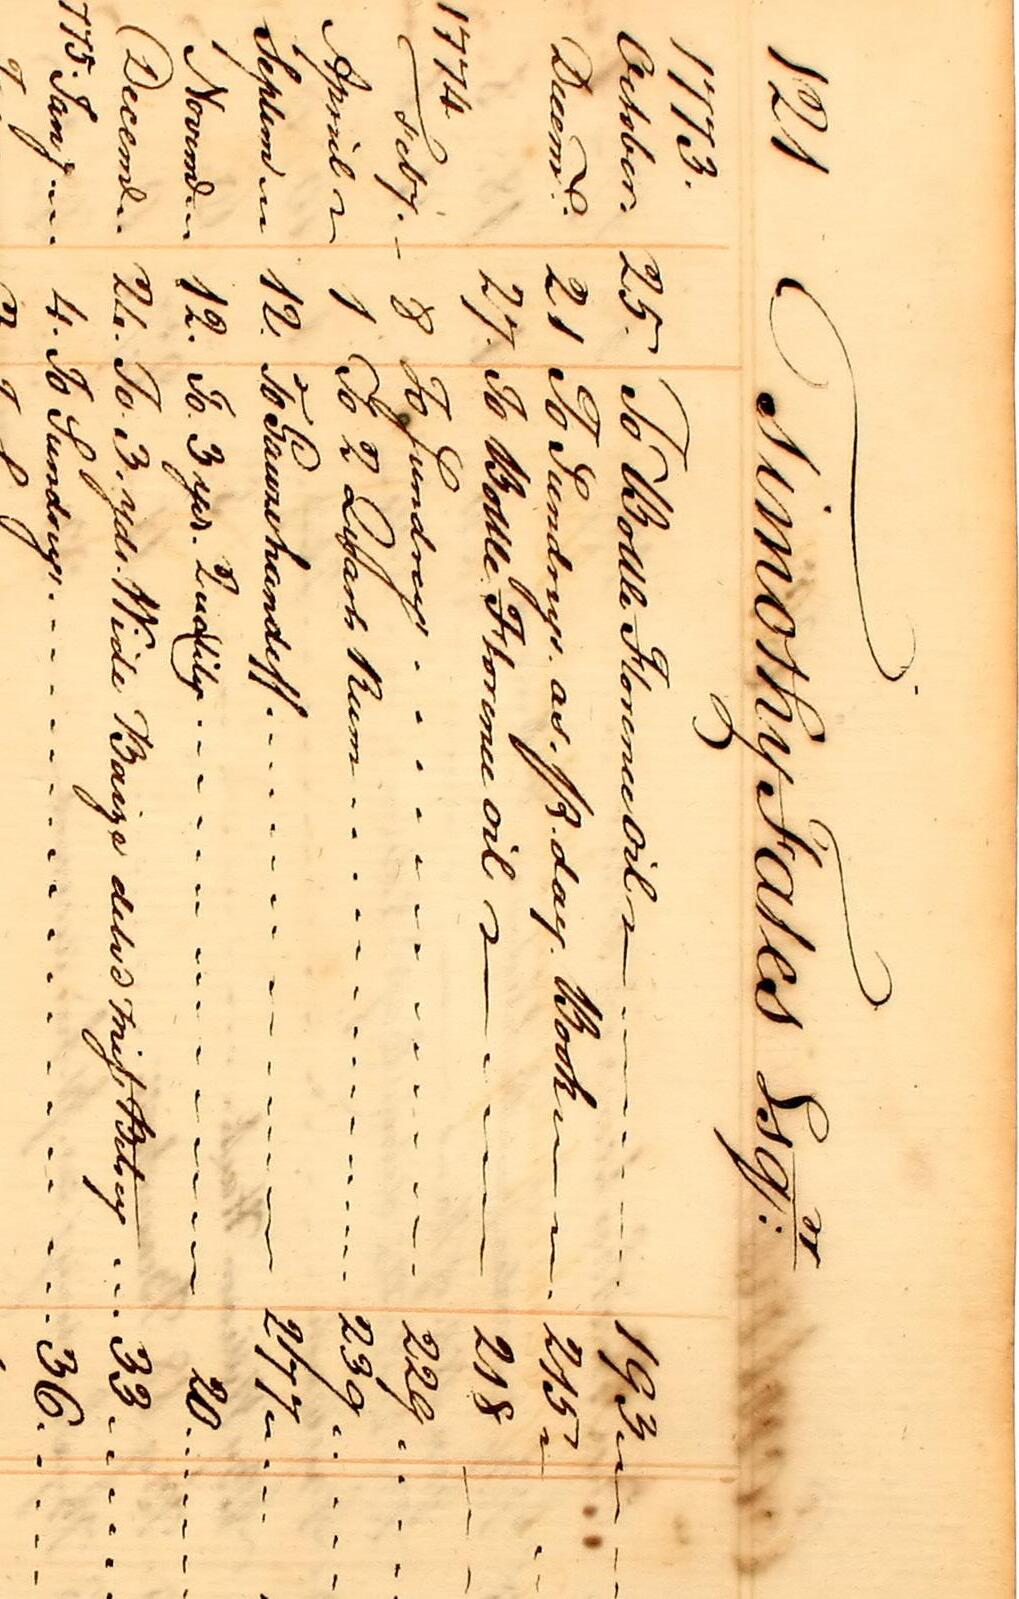 121 Timothy Fales Esqr:
1773.
October. 25. To Bottle Florence Oil 193
Decemr: 21 To Sundrys. as. pr. day. Book 215
27. To Bottle Florence oil 218
1774
Feby. 8 To Sundrys 229
April 1 To 2 Quarts Rum 239
Septem 12. To Gauzehandkff. 277
Novemr 12. To 3 yds. 20
Decemr. 21. To. 3. yds. Wide Baize delivd Miss Betsey 33
1775. Jany 4. To Sundrys. 36